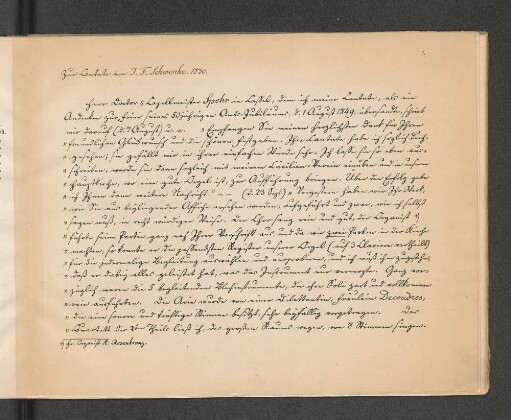 Zur Cantate von J. F. Schwenke. 1730.
Herr Doctor & Capellmeister Spohr in Cassel, dem ich meine Cantate, als ein
Andenken zur Feier seines 50jährigen Amts-Jubiläums, d. 1 August 1849, übersandte, schrieb
mir darauf (d. 7 August) u. a. „Empfangen Sie meinen herzlichsten Dank für Ihren
„freundlichen Glückwunsch und die schönen Festgaben. Ihre Cantate habe ich sogleich durch-
„gesehen; sie gefällt mir in ihrer einfachen Würde sehr. Ich lasse sie so eben aus-
„schreiben, werde sie dann sogleich mit meinem Cäcilien Verein einüben und in unserer
„Hauptkirche, wo eine gute Orgel ist, zur Aufführung bringen. Über den Erfolg gebe
ich Ihnen dann weitere Nachricht." — (d. 23 Sept) „Vergangen haben wir Ihr Werk,
„wie Sie aus beiliegender Affiche ersehen werden, aufgeführt und zwar, wie ich selbst
„sagen muß, in recht würdiger Weise. Der Chor sang rein und gut, der Organist
„führte seine Partie ganz nach Ihrer Vorschrift aus und da wir zwei Proben in der Kirche
„machten, so konnte er die passendsten Register unserer Orgel (auf 3 Clavieren vertheilt)
„für die jedesmalige Begleitung auswählen und ausprobiren, und ich muß ihm zugestehen
„daß er dabei alles geleistet hat, was das Instrument nur vermochte. Ganz vor-
„züglich waren die 5 begleitenden Blasinstrumente, die ihre Soli zart und vollkommen
„rein ausführten. Die Arie wurde von einer Dilettantin, Fräulein Decoudres,
„die eine sonore und kräftige Stimme besitzt, sehr beyfällig vorgetragen. Das
„Quartett des 2ten Theils ließ ich, des großen Raums wegen, von 8 Stimmen singen.
Hr. Organist